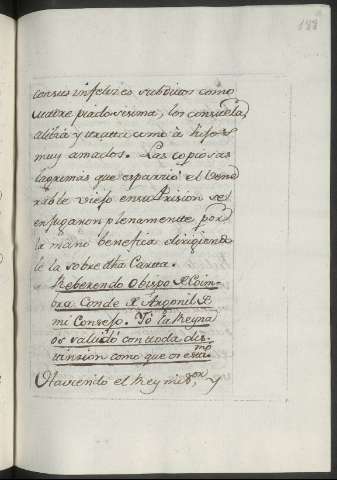 188
consus infelizes subditos como
madre piadosisima, los consuela,
alibia y tratta como à hijos
muy amados. Las copiosas
lagrimas que esparrió el Vene
rable viejo en su Prision se
enjugaron plenamente por
la mano benefica dirigiendo
le la sobre dha Carta.
Reberendo Obispo de Coim-
bra Conde de Argonil de
mi Consejo. Yo la Reyna
os saludo con toda dis-
tinsion como que os estimo
Haviendo el Rey mi Sor, y